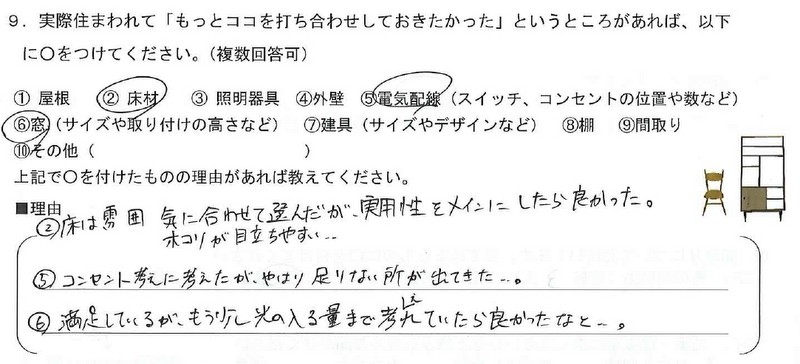 9．実際住まわれて「もっとココを打ち合わせしておきたかった」というところがあれば、以下
に〇をつけてください。（複数回答可）
① 屋根　② 床材　③ 照明器具　④外壁　⑤電気配線（スイッチ、コンセントの位置や数など）
⑥窓（サイズや取り付けの高さなど）　⑦建具（サイズやデザインなど）　⑧棚　⑨間取り
⑩その他（　　　　　　　　　　　　）
上記で〇を付けたものの理由があれば教えてください。
■理由
②床は雰囲気に合わせて選んだが、実用性をメインにしたら良かった。
ホコリが目立ちやすい…
⑤コンセント考えに考えたが、やはり足りない所が出てきた…。
⑥満足しているが、もう少し光の入る量まで考えれていたら良かったなと…。